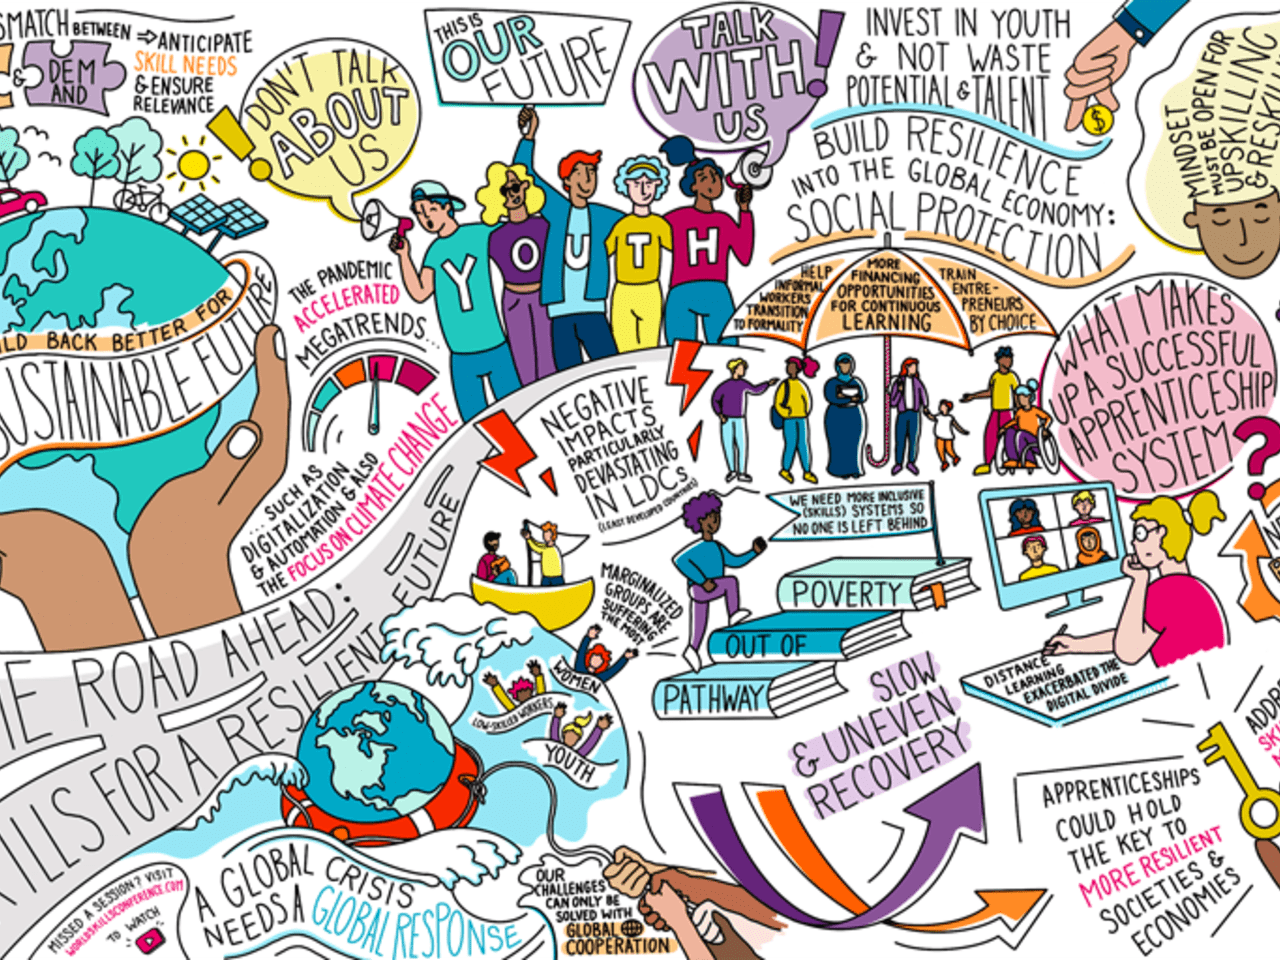 SMATCH BETWEEN
&
DEM
AND
⇒ANTICIPATE
SKILL NEEDS
& ENSURE
RELEVANCE
DON'T TALK
ABOUT
US
THIS IS
OUR
FUTURE
TALK
WITH
US
INVEST IN YOUTH
& NOT WASTE
POTENTIAL & TALENT
BUILD RESILIENCE
INTO THE GLOBAL ECONOMY:
SOCIAL PROTECTION
MINDSET
MUST BE OPEN FOR
UPSKILLING
& RESKILLING
YOUTH
BACK BETTER FOR
SUSTAINABLE FUTURE
THE PANDEMIC
ACCELERATED
MEGATRENDS...
...SUCH AS
DIGITALIZATION
& AUTOMATION & ALSO
THE FOCUS ON CLIMATE CHANGE
HELP
INFORMAL
WORKERS
TRANSITION
TO FORMALITY
MORE
FINANCING
OPPORTUNITIES
FOR CONTINUOUS
LEARNING
TRAIN
ENTRE-
PRENEURS
BY CHOICE
WHAT MAKES
UP A SUCCESSFUL
APPRENTICESHIP
SYSTEM
?
NEGATIVE
IMPACTS
PARTICULARLY
DEVASTATING
IN LDCs
(LEAST DEVELOPED COUNTRIES)
WE NEED MORE INCLUSIVE
(SKILLS) SYSTEMS SO
NO ONE IS LEFT BEHIND
POVERTY
OUT OF
PATHWAY
MARGINALIZED
GROUPS ARE
SUFFERING
THE MOST
WOMEN
LOW-SKILLED WORKERS
YOUTH
DISTANCE
LEARNING
EXACERBATED THE
DIGITAL DIVIDE
ROAD AHEAD:
SKILLS FOR A RESILIENT
FUTURE
SLOW
& UNEVEN
RECOVERY
APPRENTICESHIPS
COULD HOLD
THE KEY TO
MORE RESILIENT
SOCIETIES &
ECONOMIES
MISSED A SESSION? VISIT
WORLDSKILLSCONFERENCE.COM
TO WATCH
A GLOBAL CRISIS
NEEDS A GLOBAL RESPONSE
OUR
CHALLENGES
CAN ONLY BE
SOLVED WITH
GLOBAL
COOPERATION